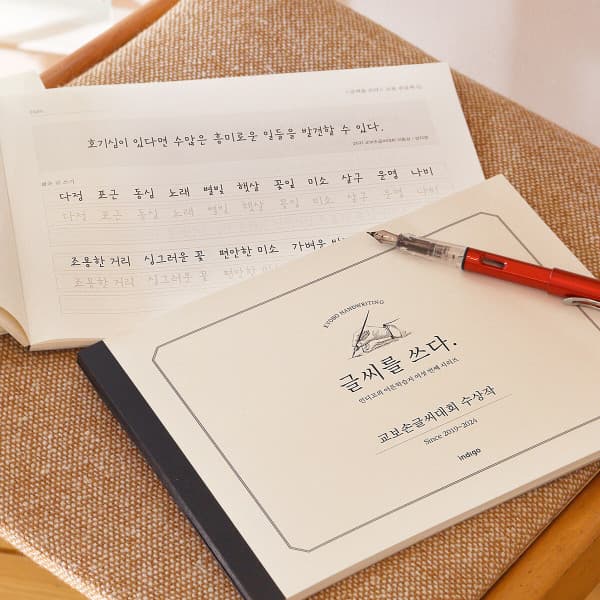 호기심이 있다면 수많은 흥미로운 일들을 발견할 수 있다.
다정 포근 동심 노래 별빛 햇살 꽃잎 미소 살구 운명 나비
다정 포근 동심 노래 별빛 햇살 꽃잎 미소 살구 운명 나비
조용한 거리 싱그러운 꽃 편안한 미소 가벼운
조용한 거리 싱그러운 꽃 편안한 미소
KYOBO HANDWRITING
글씨를 쓰다.
인디고의 어른학습지 여섯 번째 시리즈
교보손글씨대회 수상작
Since 2019~2024
indigo